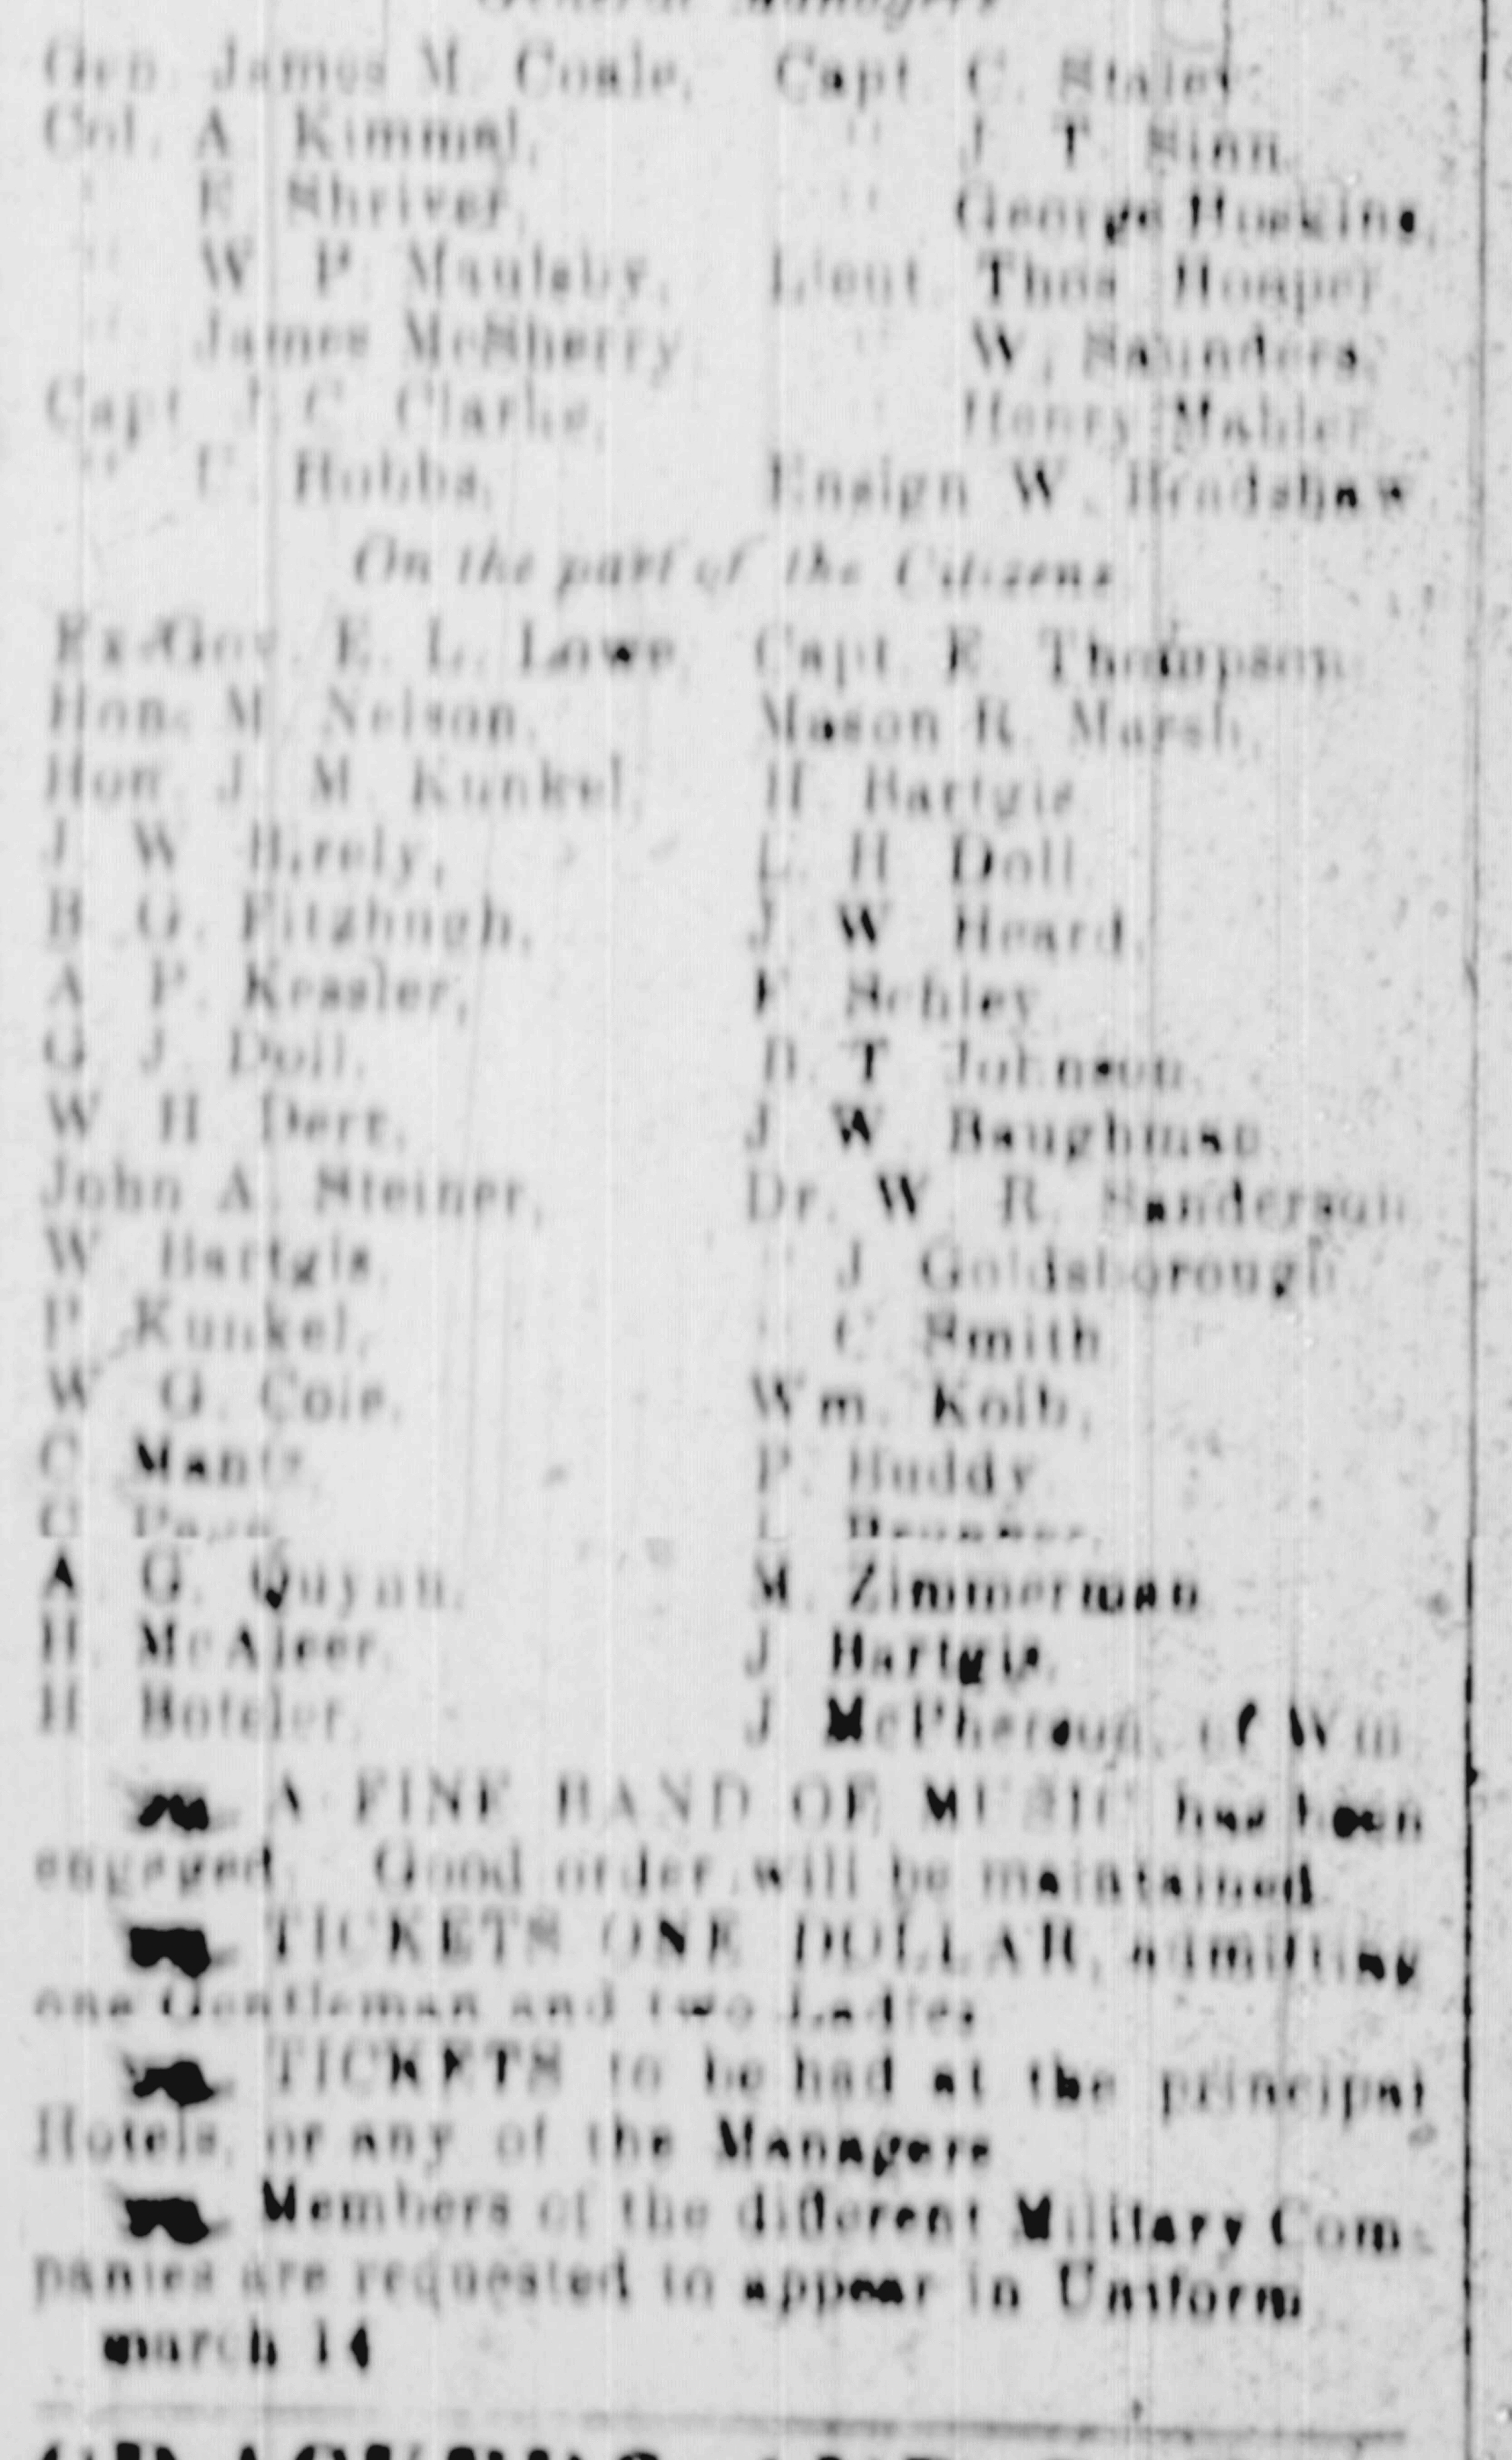 General Managers
Gen. James M. Coale, Capt. C. Staley.
Col. A. Kimmel, " J. T. Sinn
" E. Shriver, " George Hoskins,
" W. P. Maulsby, Lieut. Thos. Hooper
" James McSherry W. Saunders,
Capt. J. C. Clarke, " Henry Mahler
" U. Hobbs, Ensign W. Bradshaw
On the part of the Citizens
Ex-Gov. E. L. Lowe, Capt. E. Thompson
Hon. M. Nelson, Mason R. Marsh,
Hon. J. M. Kunkel, H. Bartgis
J. W. Birely, L. H. Doll
B. G. Fitzhugh, J. W. Heard,
A. P. Kessler, F. Schley
G. J. Doll, B. T. Johnson
W. H. Derr, J. W. Baughman
John A. Steiner, Dr. W. R. Sanderson
W. Bartgis " J. Goldsborough
P. Kunkel, " C. Smith
W. G. Cole, Wm. Kolb,
C. Mantz P. Buddy
A. G. Quynn, M. Zimmerman
H. McAleer, J. Bartgis,
H. Boteler, J. McPherson, of Wm
A FINE BAND OF MUSIC has been
engaged. Good order will be maintained
TICKETS ONE DOLLAR, admitting
one Gentleman and two Ladies
TICKETS to be had at the principal
Hotels, or any of the Managers
Members of the different Military Com-
panies are requested to appear in Uniform
march 14